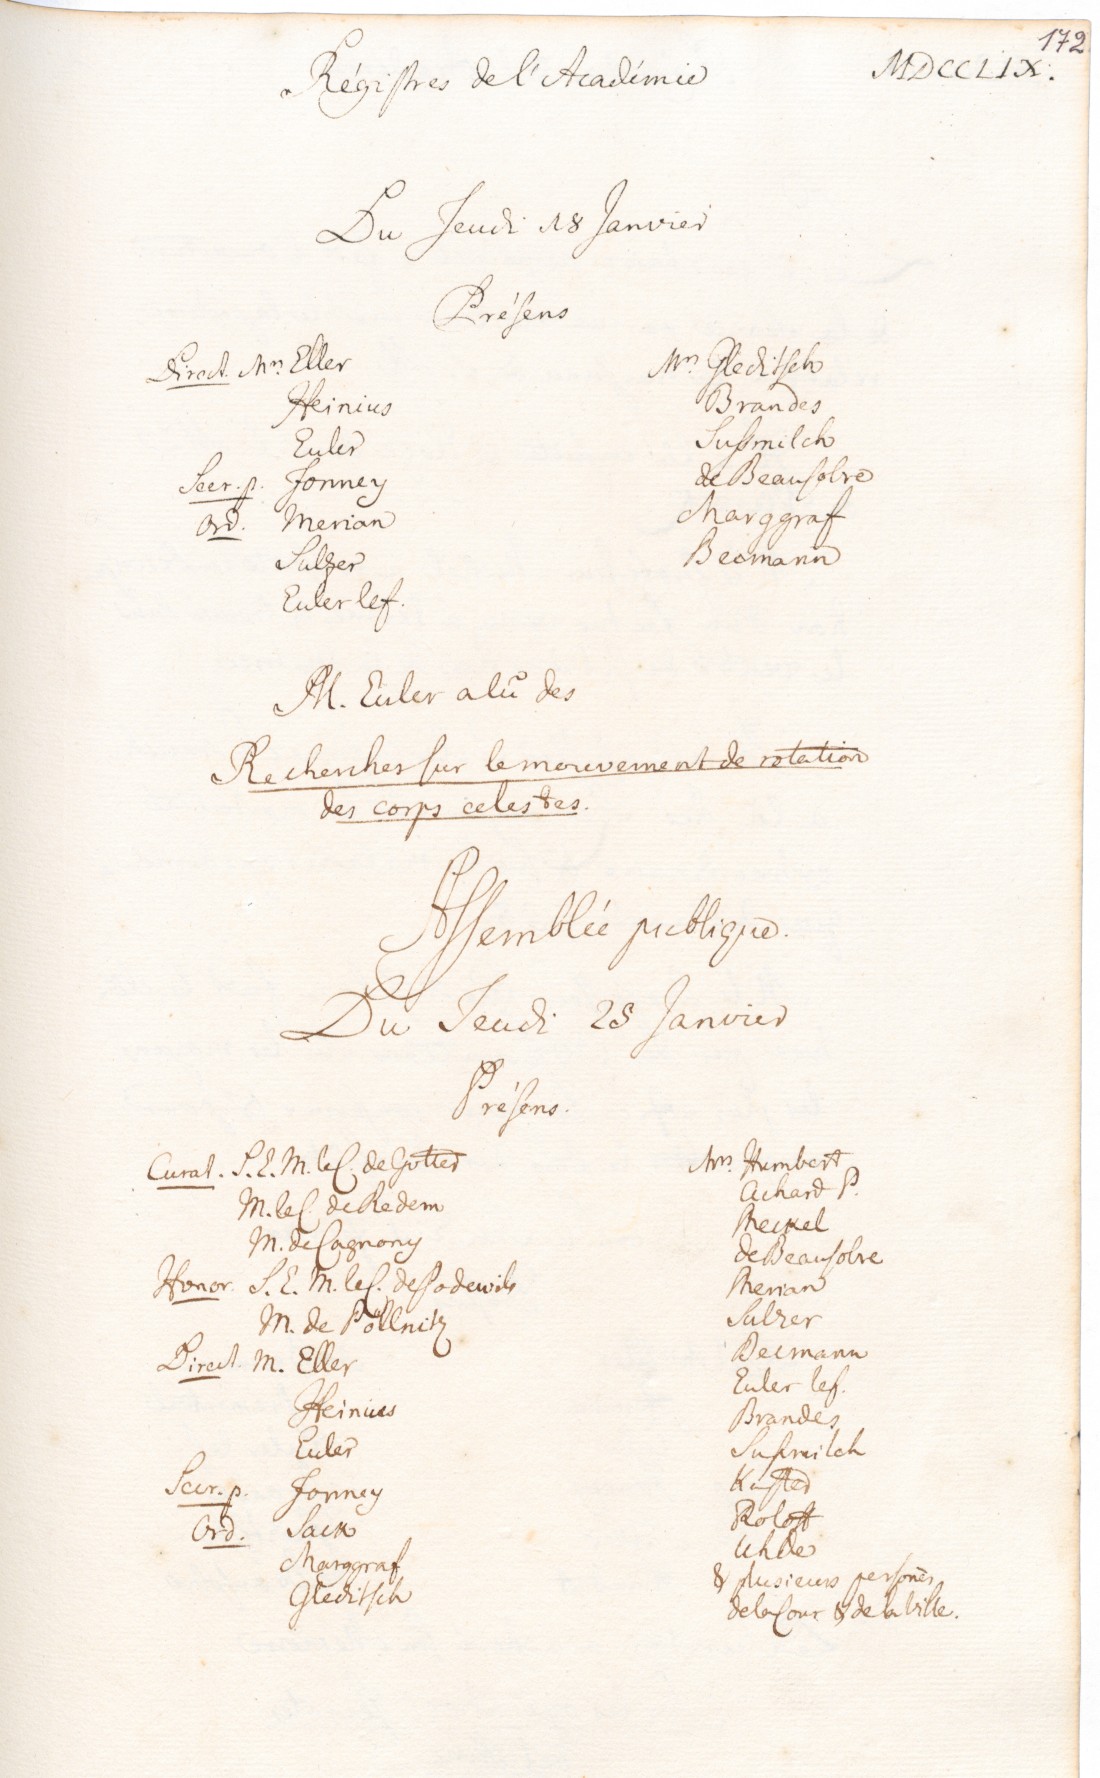 172
Régistres de l'Académie
MDCCLIX.
Du Jeudi 18 Janvier
Présens
Direct. Mrs Eller
Heinius
Euler
Secr. p. Formey
Ord. Merian
Sulzer
Euler le f.
Mrs Gleditsch
Brandes
Sussmilch
de Beausobre
Marggraf
Becmann
M. Euler a lû des
Recherches sur le mouvement de rotation
des corps celestes.
Assemblée publique.
Du Jeudi 25 Janvier
Présens.
Curat. S. E. M. le C. de Gotter
M. le C. de Redern
M. de Cagnony
Honor. S. E. M. le C. de Podewils
M. de Pöllnitz
Direct. M. Eller
Heinius
Euler
Secr. p. Formey
Ord. Sack
Marggraf
Gleditsch
Mrs Humbert
Achard P.
Meckel
de Beausobre
Merian
Sulzer
Becmann
Euler le f.
Brandes
Sussmilch
Kuster
Roloff
Uhden
& plusieurs persones
de la Cour & de la Ville.